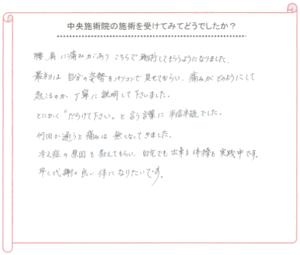 中央施術院の施術を受けてみてどうでしたか？
腰、肩に痛みがあり こちらで施術してもらうようになりました。
最初は 自分の姿勢をパソコンで見せてもらい、痛みがどのようにして
起こるのか、丁寧に説明して下さいました。
とにかく“だらけて下さい。”と言う言葉に 半信半疑でした。
何回か通うと痛みは 無くなってきました。
冷え症の原因も教えてもらい、自宅でも出来る体操を実践中です。
早く代謝の良い体になりたいです。